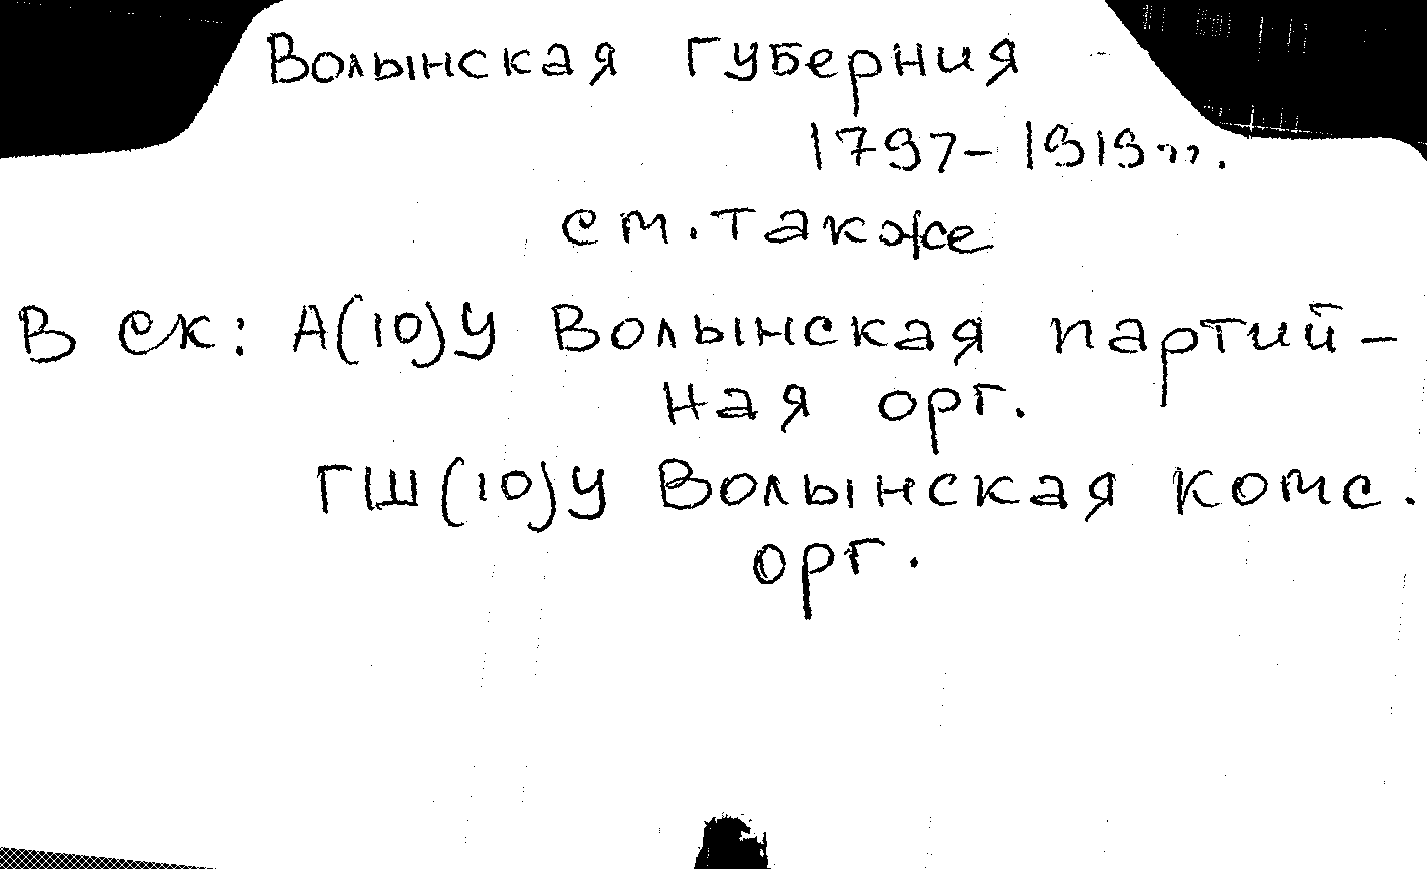 Волынская губерния
1797-1919 гг.
см. также
В ск: А(10)У Волынская партий-
ная орг.
ГШ(10)У Волынская комс.
орг.